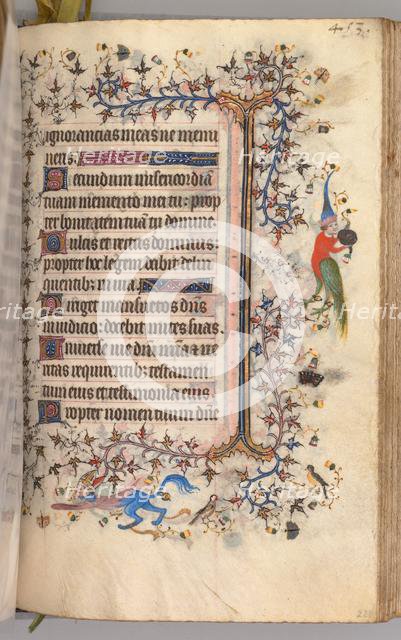 ignorancias meas ne memi
neris
Secundum misericordiā
tuam memento mei tu: prop
ter bonitatem tuam domine.
Dulcis et rectus dominus
propter hoc legem dabit delin
quentib; in via.
Diriget mansuetos
in iudicio: docebit mites suas.
Universe vie dn̄i mīa et ve
ritas requirentib; testamen
tum eius et testimonia eius
Propter nomen tuum dn̄e
Heritage